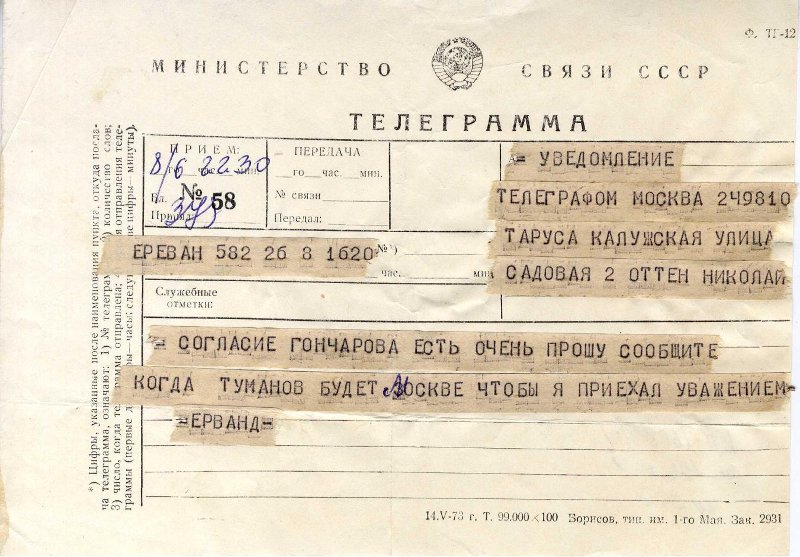 Ф. ТГ-12
МИНИСТЕРСТВО СВЯЗИ СССР
ТЕЛЕГРАММА
ПРИЕМ:
8/6 22 30
го час. мин.
Бл. № 58
Принял:
ПЕРЕДАЧА
го час. мин.
№ связи
Передал:
= УВЕДОМЛЕНИЕ
ТЕЛЕГРАФОМ МОСКВА 249810
ТАРУСА КАЛУЖСКАЯ УЛИЦА
САДОВАЯ 2 ОТТЕН НИКОЛАЙ
ЕРЕВАН 582 26 8 1620 № *)
час. мин
Служебные
отметки:
= СОГЛАСИЕ ГОНЧАРОВА ЕСТЬ ОЧЕНЬ ПРОШУ СООБЩИТЕ
КОГДА ТУМАНОВ БУДЕТ МОСКВЕ ЧТОБЫ Я ПРИЕХАЛ УВАЖЕНИЕМ=
=ЕРВАНД=
*) Цифры, указанные после наименования пункта, откуда посла-
на телеграмма, означают: 1) № телеграм количество слов;
3) число, когда те ма отправлена; отправления теле-
граммы (первые ры—часы; следу ие цифры—минуты).
14.V-73 г. Т. 99.000×100 Борисов, тип. им. 1-го Мая. Зак. 2931